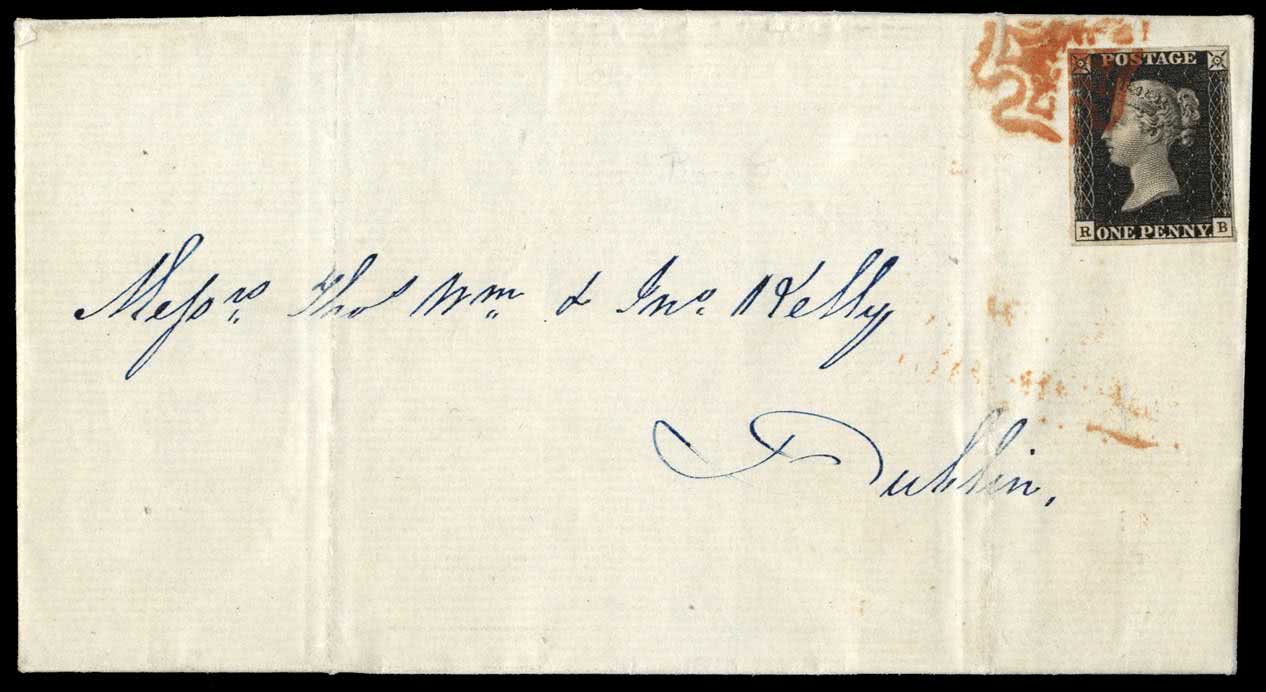 POSTAGE
R ONE PENNY. B
Messrs. Thos Wm. & Jno. Kelly
Dublin,